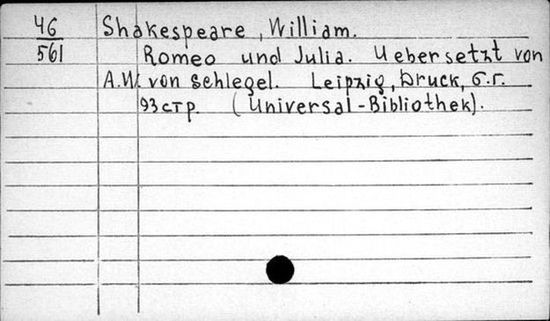 46
561
Shakespeare, William.
Romeo und Julia. Uebersetzt von
A.W. von Schlegel. Leipzig, Druck, б.г.
93 стр. (Universal-Bibliothek).